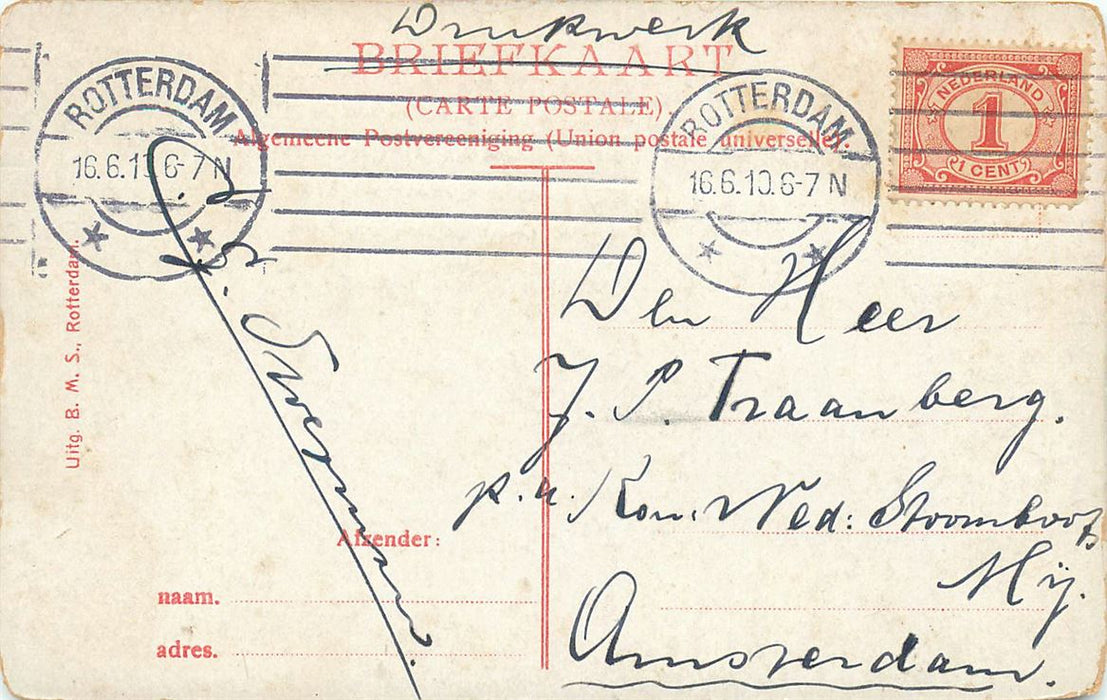 Drukwerk
BRIEFKAART
(CARTE POSTALE).
Algemeene Postvereeniging (Union postale universelle).
ROTTERDAM
16.6.10.6-7 N
ROTTERDAM
16.6.10.6-7 N
NEDERLAND
1
1 CENT
Uitg. B. M. S., Rotterdam.
Den Heer
J. P. Traanberg.
p.a. Kon: Ned: Stoomboot
Mij.
Amsterdam.
Afzender:
naam.
adres.